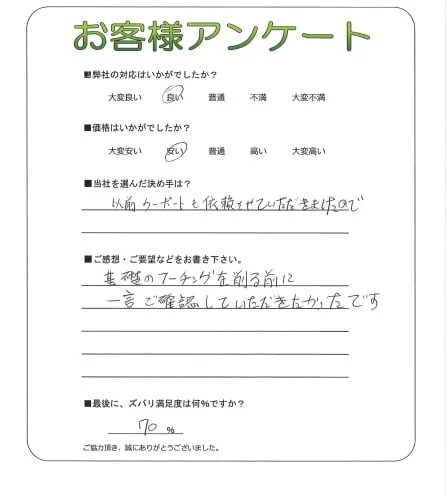 お客様アンケート
■弊社の対応はいかがでしたか？
大変良い 良い 普通 不満 大変不満
■価格はいかがでしたか？
大変安い 安い 普通 高い 大変高い
■当社を選んだ決め手は？
以前カーポートも依頼させていただきましたので
■ご感想・ご要望などをお書き下さい。
基礎のフーチングを削る前に
一言ご確認していただきたかったです
■最後に、ズバリ満足度は何%ですか？
70 %
ご協力頂き、誠にありがとうございました。